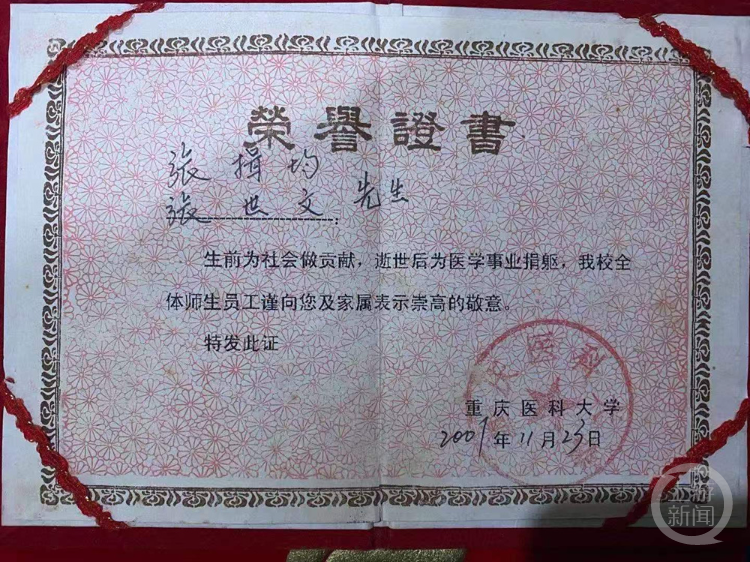 榮譽證書
張揖均
張世文 先生
生前为社会做贡献，逝世后为医学事业捐躯，我校全
体师生员工谨向您及家属表示崇高的敬意。
特发此证
医科
重庆医科大学
2007年11月23日
上游
新闻